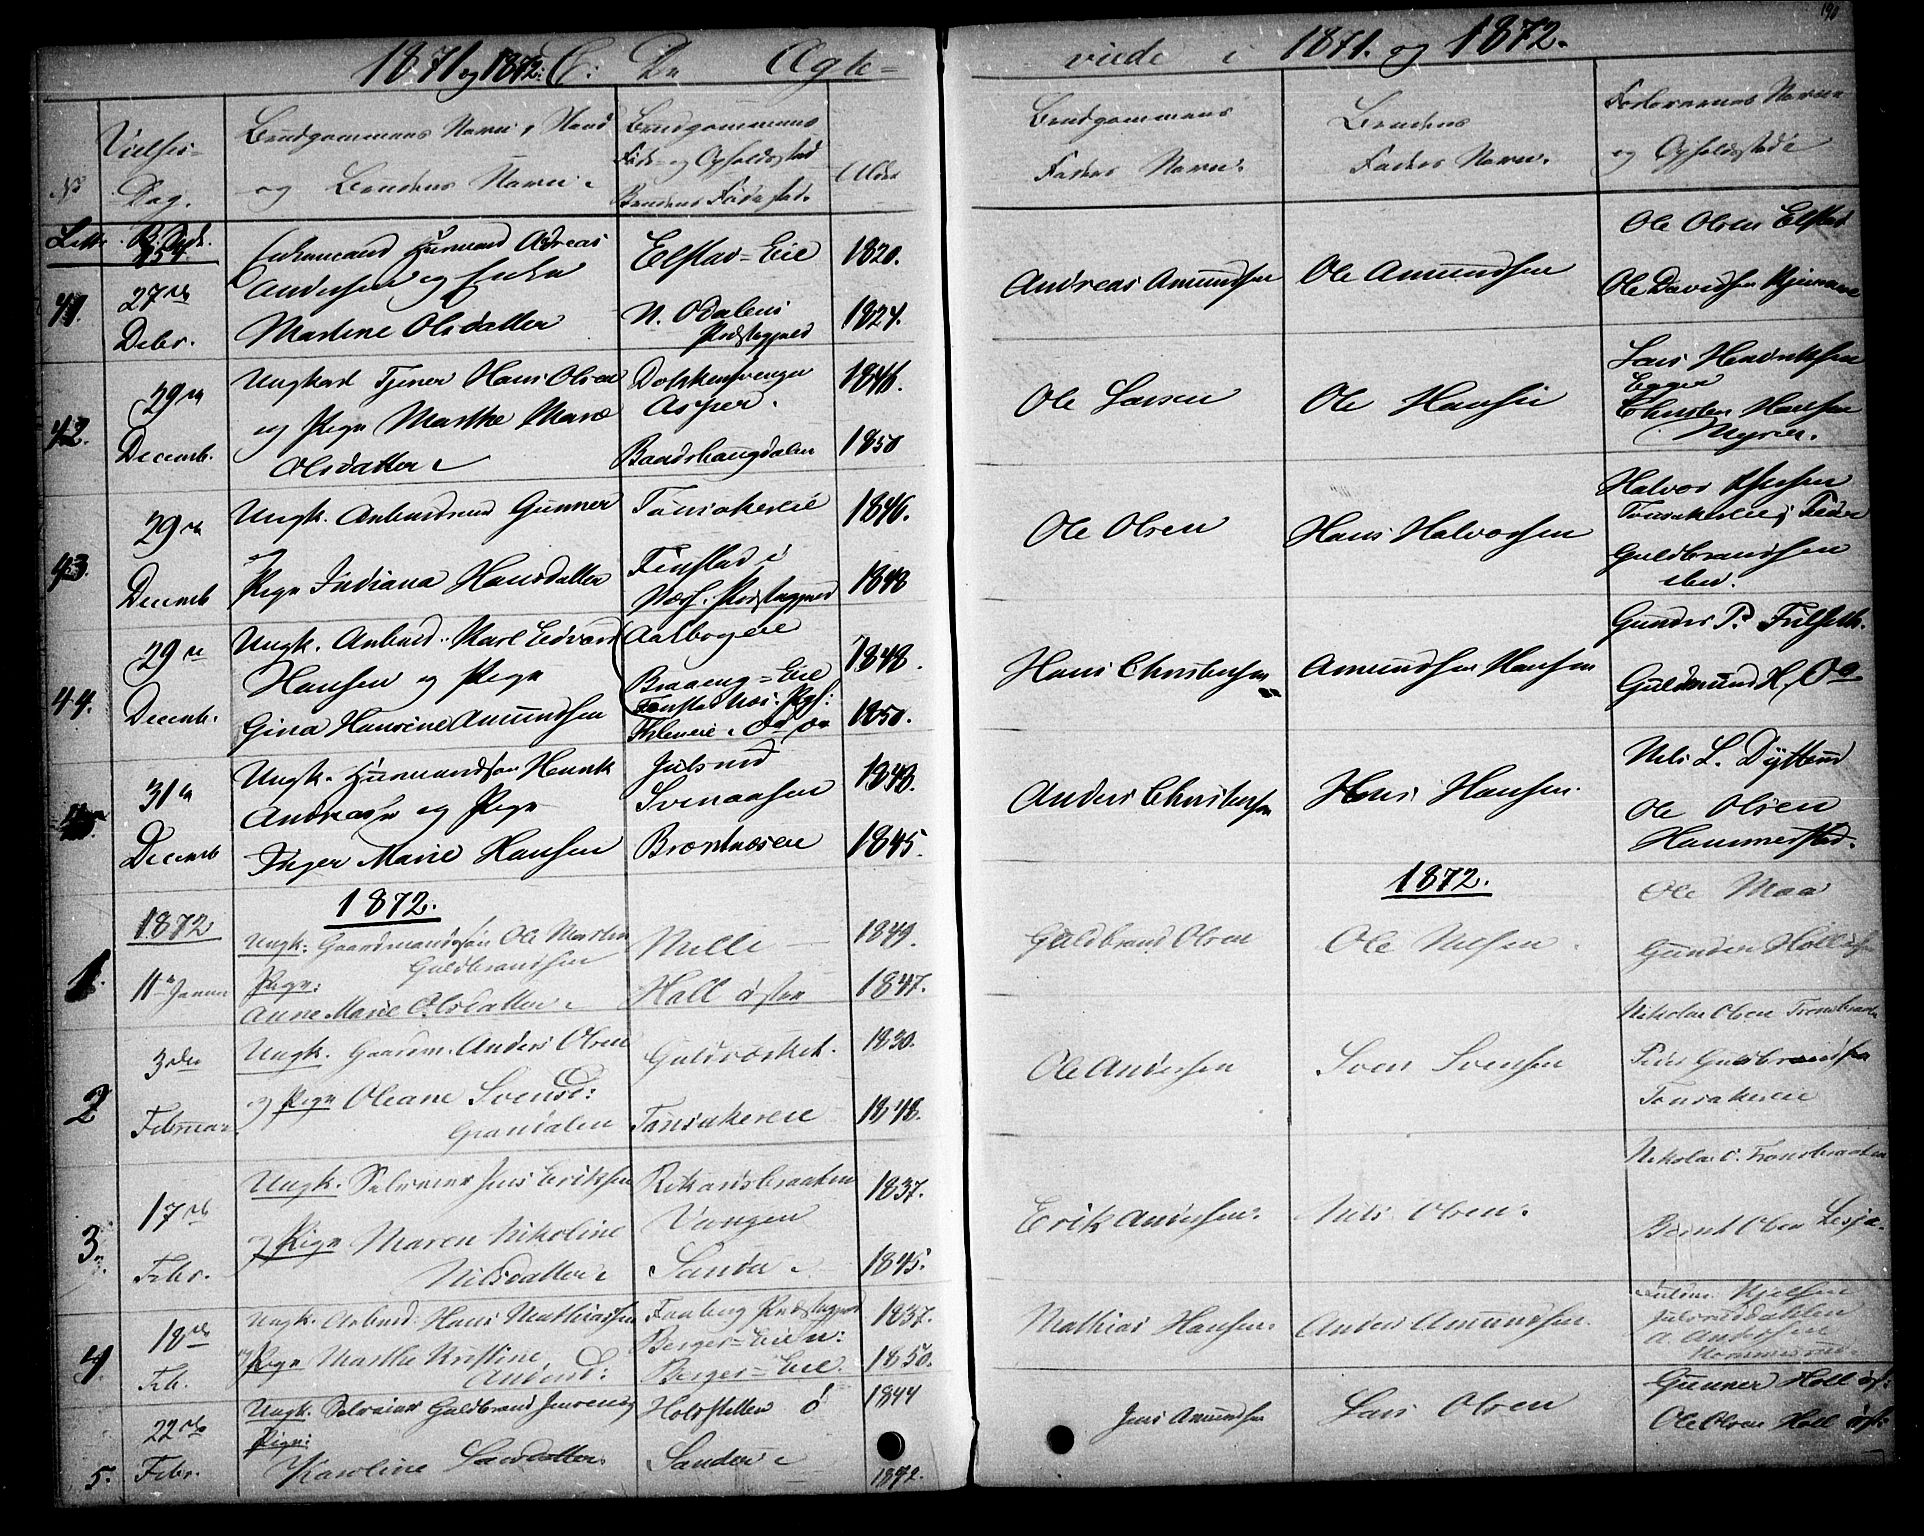 1871 og 1872. C: De Ægte-
viede i 1871. og 1872.
190
No
Vielses-
Dag.
Brudgommens Navn, Stand
og Brudens Navn.
Brudgommens
Føde- og Opholdssted
Brudens Fødested.
Alder
Brudgommens
Faders Navn.
Brudens
Faders Navn.
Forlovernes Navne
og Opholdssted
41.
27de
Debr.
Enkemand Husmand Andreas
Andersen og Enke
Martine Olsdatter
Elstad-Eie
N. Odalens
Præstegjeld
1820.
1824.
Andreas Amundsen
Ole Amundsen
Ole Olsen Elstad
Ole Davidsen
42.
29de
Decemb.
Ungkarl Tjener Hans Olsen
og Pige Marthe Marie
Olsdatter
Asper.
Baadshaugdalen
1846.
1850
Ole Larsen
Ole Hansen
Lars Henriksen
Egger
Christen Hansen
Myrer.
43.
29de
Decemb
Ungk. Arbeidsmd Gunner
og
Pige Indiana Hansdatter
Tonsakereie
Finstad i
Næs. Præstegjeld
1846.
1848
Ole Olsen
Hans Halvorsen
Halvor
Tonsakereie, Peder
Guldbrandsen
ibid.
44.
29de
Decemb.
Ungk. Arbmd. Karl Edvard
Hansen og Pige
Gina Hansine Amundsen
Aalbogeie
Braaeng-Eie
1848.
1850.
Hans Christensen
Amundsen Hansen
Gunder P. Fulseth.
Guldmund H. Oa
31te
Decemb
Ungk. Husmandsøn Henrik
Andreas og Pige
Inger Marie Hansen
Julsrud
Svenaasen
Brostnæseie
1848.
1845.
Anders Christensen
Hans Hansen.
Nils L. Dysterud
Ole Olsen
Hammerstad.
1872.
1872.
1872
1.
11te Januar
Ungk: Gaardmandssøn Ole Martin
Guldbrandsen
Pige:
Anne Marie Olsdatter
Nulli
Holl østre
1849.
1847.
Guldbrand Olsen
Ole Nilsen.
Ole Maa
Gunder Holl
2
3die
Februar.
Ungk. Gaardm. Anders Olsen
og Pige Oleane Svensd:
Grandalen
Guldværket.
Tonsakereie
1830.
1848.
Ole Andersen
Sven Svensen
Nikolai Olsen Tronsbraaten
Guldbrandsen
Tonsakereie
3.
17de
Febr.
Ungk. Selveier Jens Eriksen
og Pige Maren Nikoline
Nilsdatter
Rikardsbraaten
Vangen
Sander
1837.
1845.
Erik Andersen.
Nils Olsen.
Nikolai O. Tronsbraaten
Bernt Olsen
4.
18de
Feb.
Ungk. Arbmd. Hans Mathiassen
og Pige Marthe Kristine
Andersd:
Faaberg Præstegjeld
Berger-Eie
Berger-Eie
1837.
1850.
Mathias Hansen.
Anders Amundsen.
Julsrudsdahlen
A. Andersen
5.
22de
Febr.
Ungk. Selveier Guldbrand Jensen
Pige:
Karoline Larsdatter
Holsfetten ø
Sander
1844
1842.
Jens Amundsen
Lars Olsen
Gunner Holl øst:
Ole Olsen Holl øst: